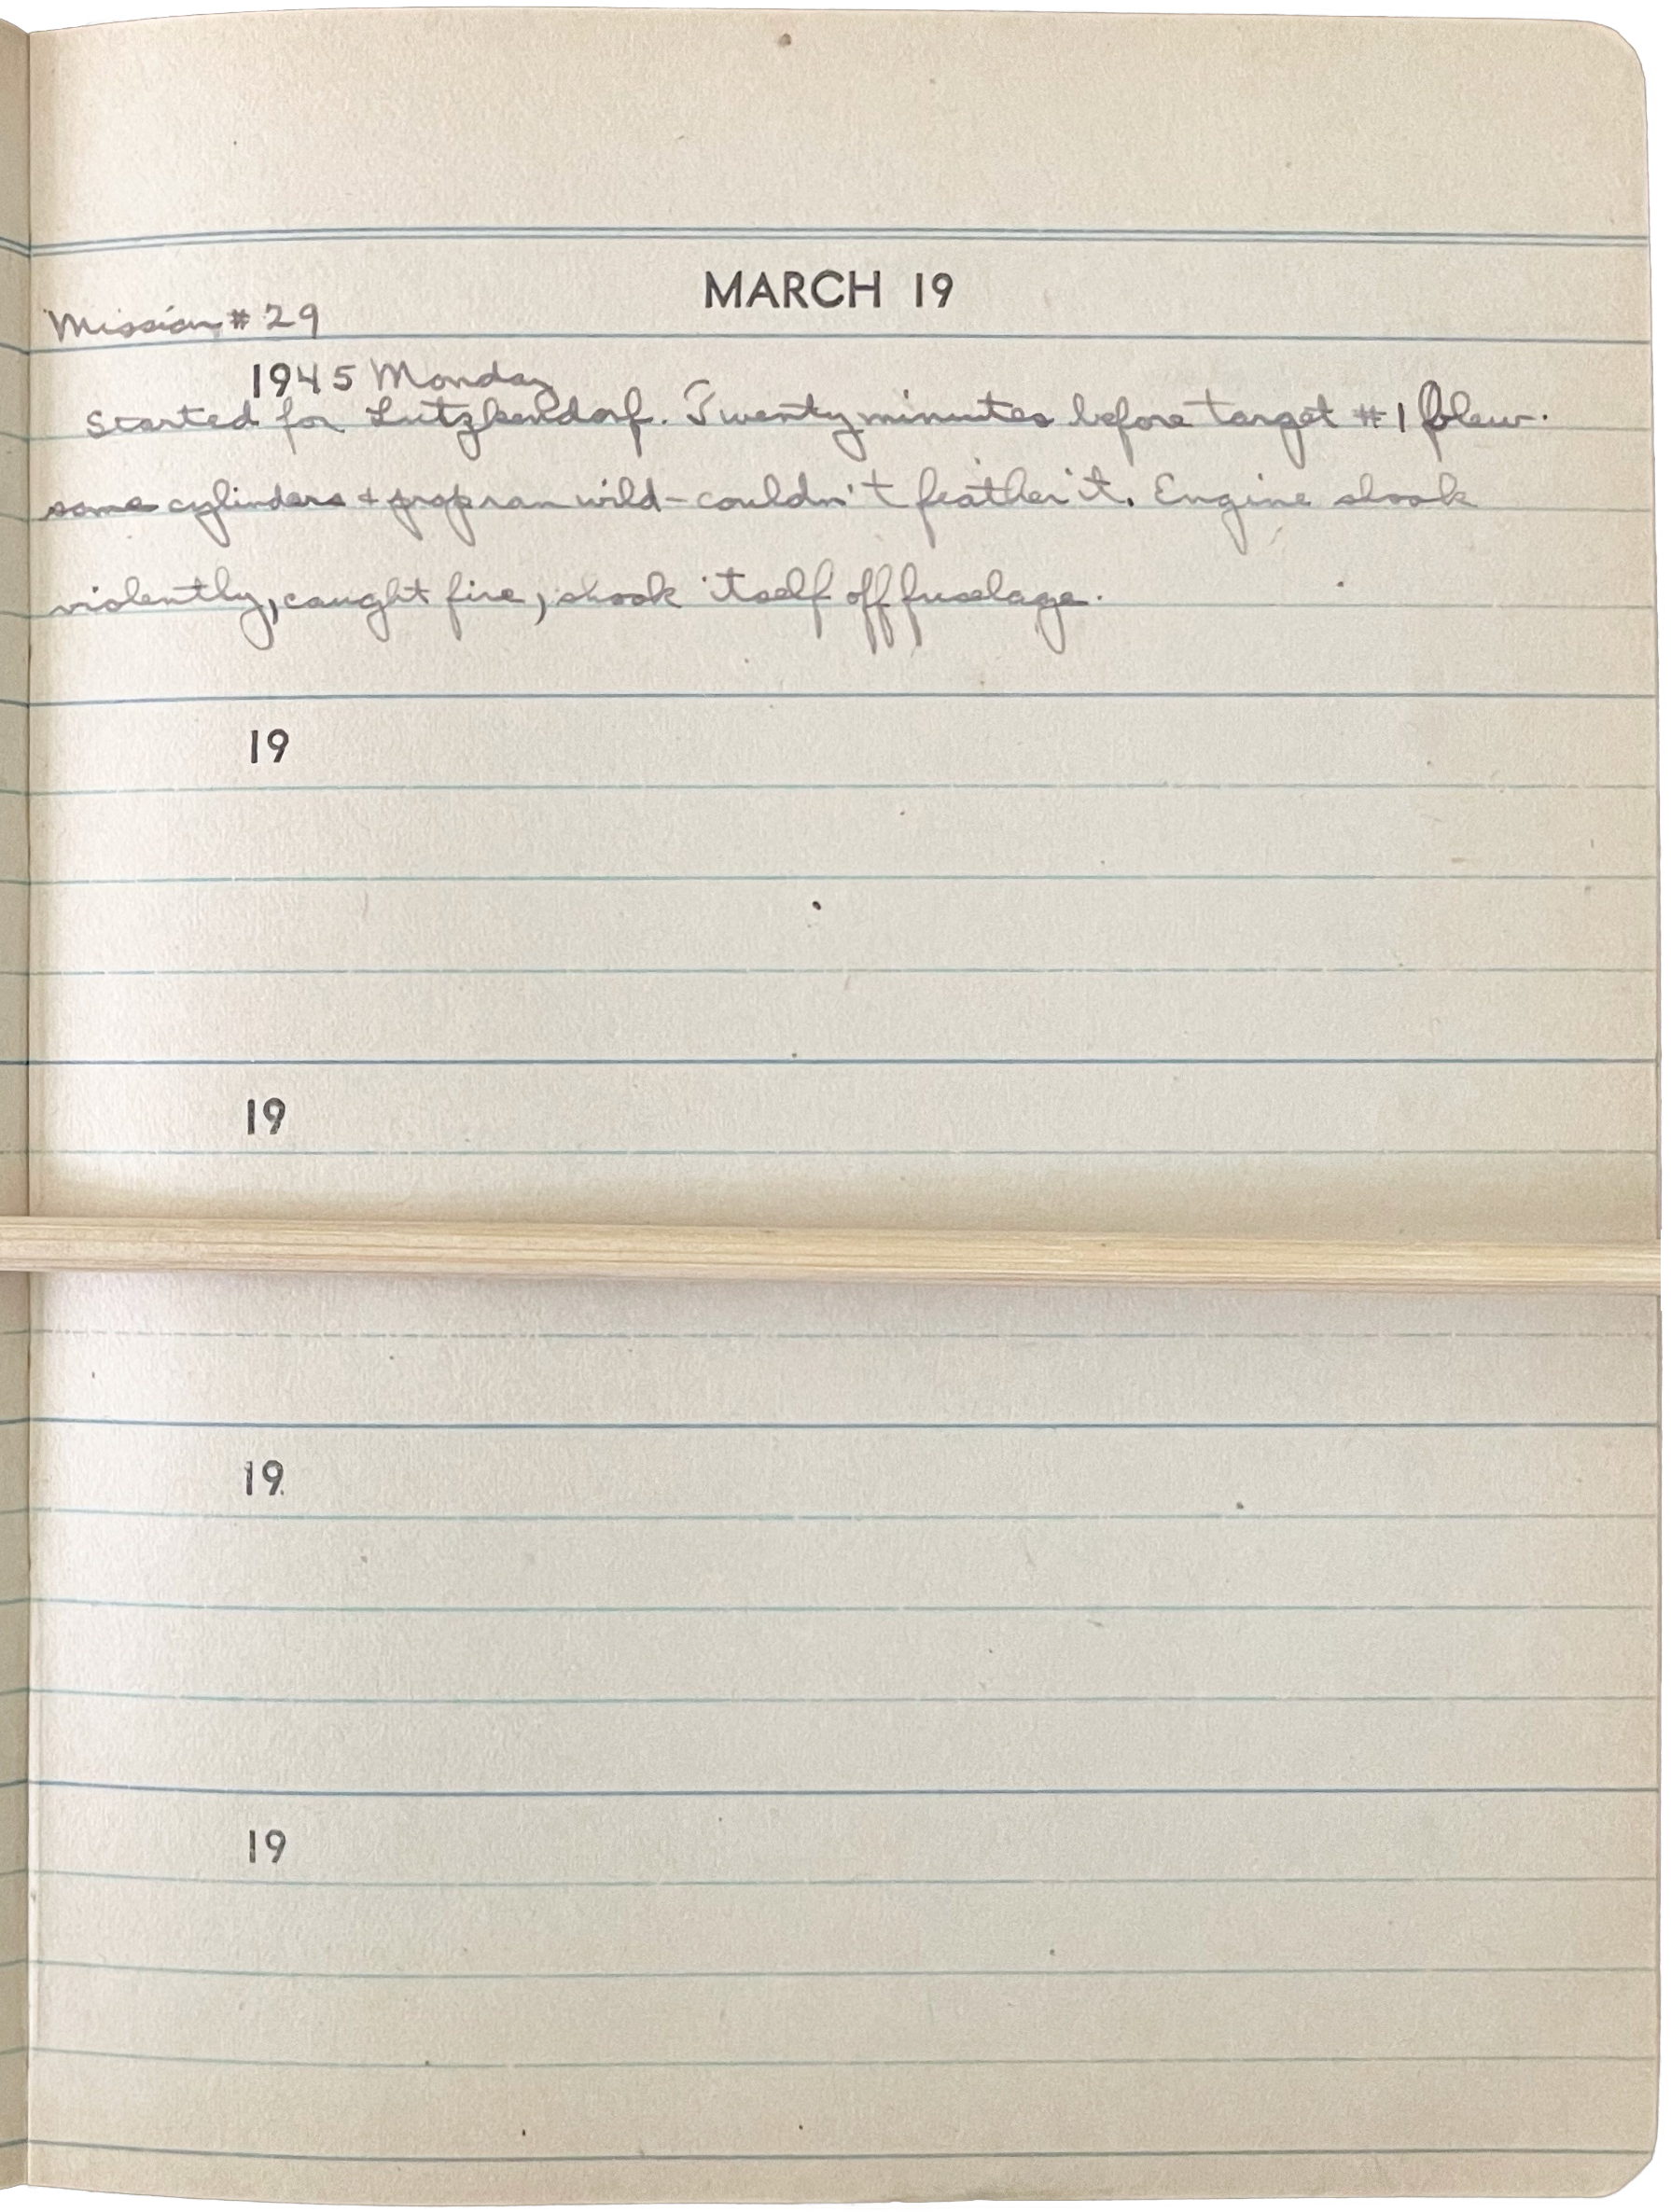 MARCH 19
Mission # 29
1945 Monday
Started for Lutzkendorf. Twenty minutes before target #1 blew
some cylinders & prop ran wild - couldn't feather it. Engine shook
violently, caught fire, shook itself off fuselage.
19
19
19
19